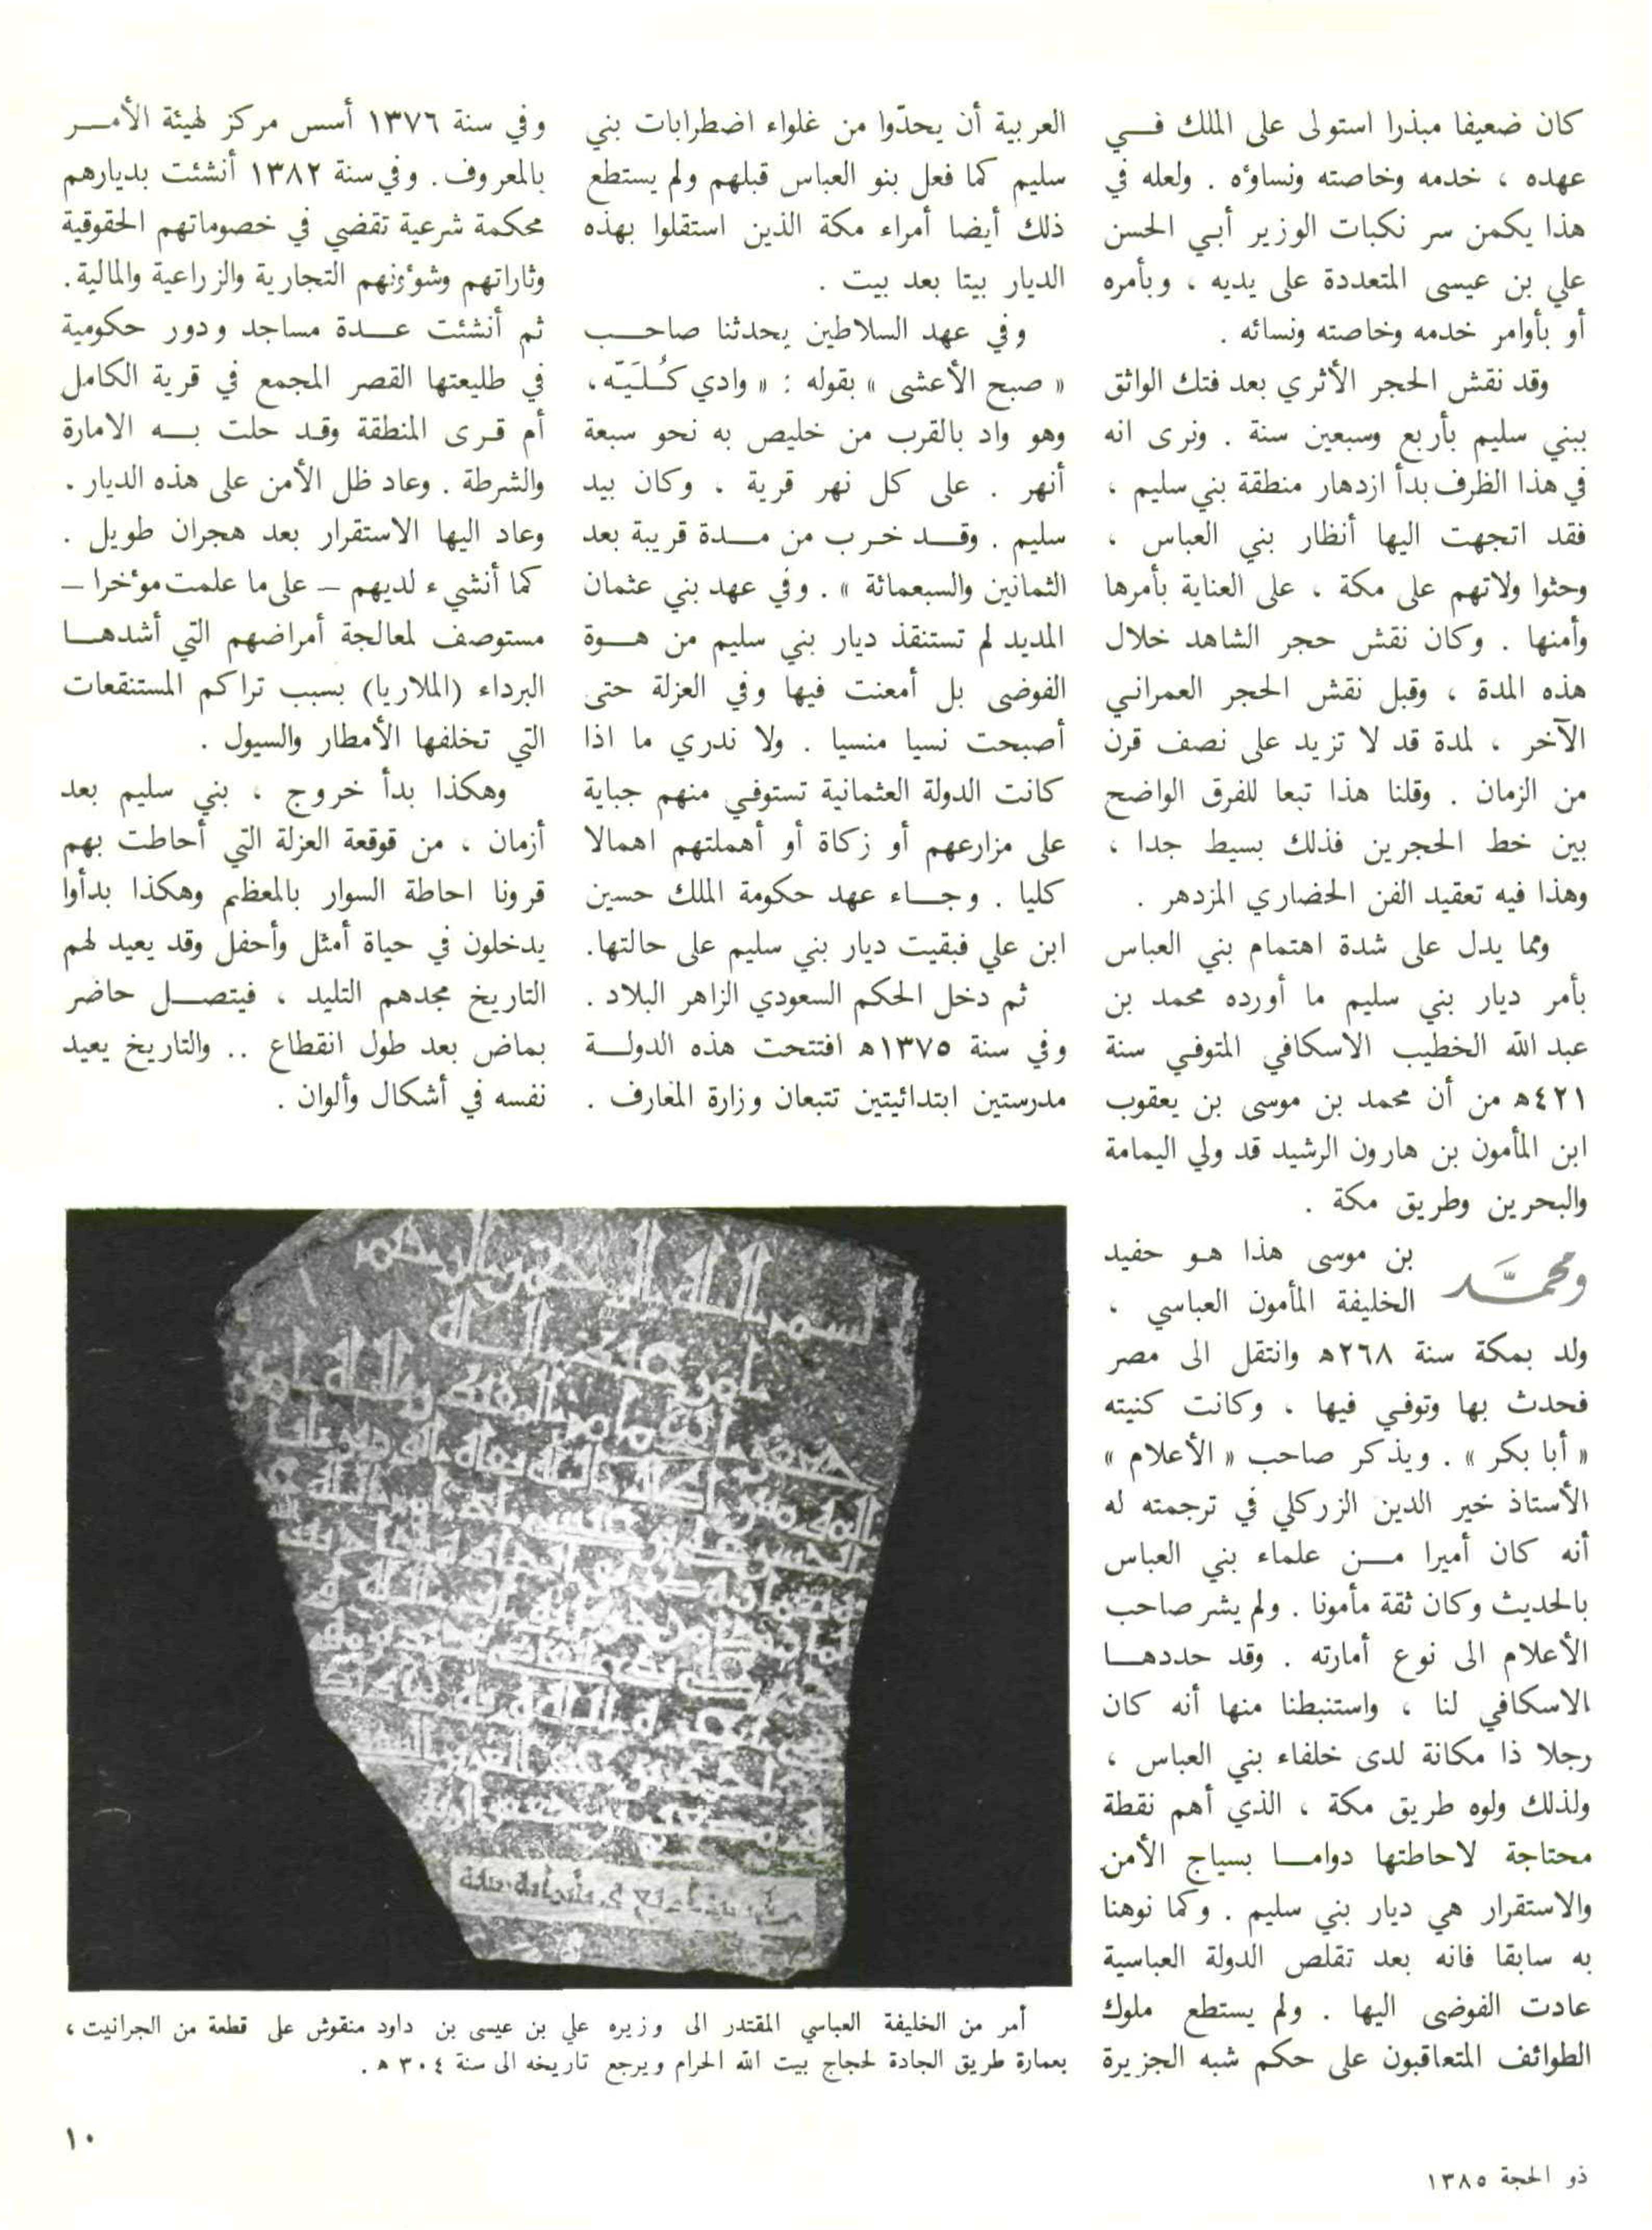 كان ضعيفا مبذرا استولى على الملك فــي
عهده ، خدمه وخاصته ونساؤه . ولعله في
هذا يكمن سر نكبات الوزير أبي الحسن
علي بن عيسى المتعددة على يديه ، وبأمره
أو بأوامر خدمه وخاصته ونسائه .
وقد نقش الحجر الأثري بعد فتك الواثق
ببني سليم بأربع وسبعين سنة . ونرى انه
في هذا الظرف بدأ ازدهار منطقة بني سليم ،
فقد اتجهت اليها أنظار بني العباس ،
وحثوا ولاتهم على مكة ، على العناية بأمرها
وأمنها . وكان نقش حجر الشاهد خلال
هذه المدة ، وقبل نقش الحجر العمراني
الآخر ، لمدة قد لا تزيد على نصف قرن
من الزمان . وقلنا هذا تبعا للفرق الواضح
بين خط الحجرين فذلك بسيط جدا ،
وهذا فيه تعقيد الفن الحضاري المزدهر .
ومما يدل على شدة اهتمام بني العباس
بأمر ديار بني سليم ما أورده محمد بن
عبد الله الخطيب الاسكافي المتوفي سنة
٤٢١ه من أن محمد بن موسى بن يعقوب
ابن المأمون بن هارون الرشيد قد ولي اليمامة
والبحرين وطريق مكة .
ومحمَّد بن موسى هذا هو حفيد
الخليفة المأمون العباسي ،
ولد بمكة سنة ٢٦٨ه وانتقل الى مصر
فحدث بها وتوفي فيها ، وكانت كنيته
« أبا بكر » . ويذكر صاحب « الأعلام »
الأستاذ خير الدين الزركلي في ترجمته له
أنه كان أميرا مــن علماء بني العباس
بالحديث وكان ثقة مأمونا . ولم يشر صاحب
الأعلام الى نوع أمارته . وقد حددهــا
الاسكافي لنا ، واستنبطنا منها أنه كان
رجلا ذا مكانة لدى خلفاء بني العباس ،
ولذلك ولوه طريق مكة ، الذي أهم نقطة
محتاجة لاحاطتها دوامــا بسياج الأمن
والاستقرار هي ديار بني سليم . وكما نوهنا
به سابقا فانه بعد تقلص الدولة العباسية
عادت الفوضى اليها . ولم يستطع ملوك
الطوائف المتعاقبون على حكم شبه الجزيرة
العربية أن يحدّوا من غلواء اضطرابات بني
سليم كما فعل بنو العباس قبلهم ولم يستطع
ذلك أيضا أمراء مكة الذين استقلوا بهذه
الديار بيتا بعد بيت .
وفي عهد السلاطين يحدثنا صاحــب
« صبح الأعشى » بقوله : « وادي كُـلَـيّـه ،
وهو واد بالقرب من خليص به نحو سبعة
أنهر . على كل نهر قرية ، وكان بيد
سليم . وقــد خـرب من مــدة قريبة بعد
الثمانين والسبعمائة » . وفي عهد بني عثمان
المديد لم تستنقذ ديار بني سليم من هــوة
الفوضى بل أمعنت فيها وفي العزلة حتى
أصبحت نسيا منسيا . ولا ندري ما اذا
كانت الدولة العثمانية تستوفي منهم جباية
على مزارعهم أو زكاة أو أهملتهم اهمالا
كليا . وجــاء عهد حكومة الملك حسين
ابن علي فبقيت ديار بني سليم على حالتها.
ثم دخل الحكم السعودي الزاهر البلاد .
وفي سنة ١٣٧٥ه افتتحت هذه الدولــة
مدرستين ابتدائيتين تتبعان وزارة المعارف .
وفي سنة ١٣٧٦ أسس مركز لهيئة الأمــر
بالمعروف . وفي سنة ١٣٨٢ أنشئت بديارهم
محكمة شرعية تقضي في خصوماتهم الحقوقية
وثاراتهم وشؤونهم التجارية والزراعية والمالية .
ثم أنشئت عــدة مساجد ودور حكومية
في طليعتها القصر المجمع في قرية الكامل
أم قـرى المنطقة وقـد حلت بــه الامارة
والشرطة . وعاد ظل الأمن على هذه الديار .
وعاد اليها الاستقرار بعد هجران طويل .
كما أنشيء لديهم – على ما علمت مؤخرا –
مستوصف لمعالجة أمراضهم التي أشدهــا
البرداء (الملاريا) بسبب تراكم المستنقعات
التي تخلفها الأمطار والسيول .
وهكذا بدأ خروج ، بني سليم بعد
أزمان ، من قوقعة العزلة التي أحاطت بهم
قرونا احاطة السوار بالمعظم وهكذا بدأوا
يدخلون في حياة أمثل وأحفل وقد يعيد لهم
التاريخ مجدهم التليد ، فيتصــل حاضر
بماض بعد طول انقطاع .. والتاريخ يعيد
نفسه في أشكال وألوان .
أمر من الخليفة العباسي المقتدر الى وزيره علي بن عيسى بن داود منقوش على قطعة من الجرانيت ،
بعمارة طريق الجادة لحجاج بيت الله الحرام ويرجع تاريخه الى سنة ٣٠٤ ه .
١٠
ذو الحجة ١٣٨٥